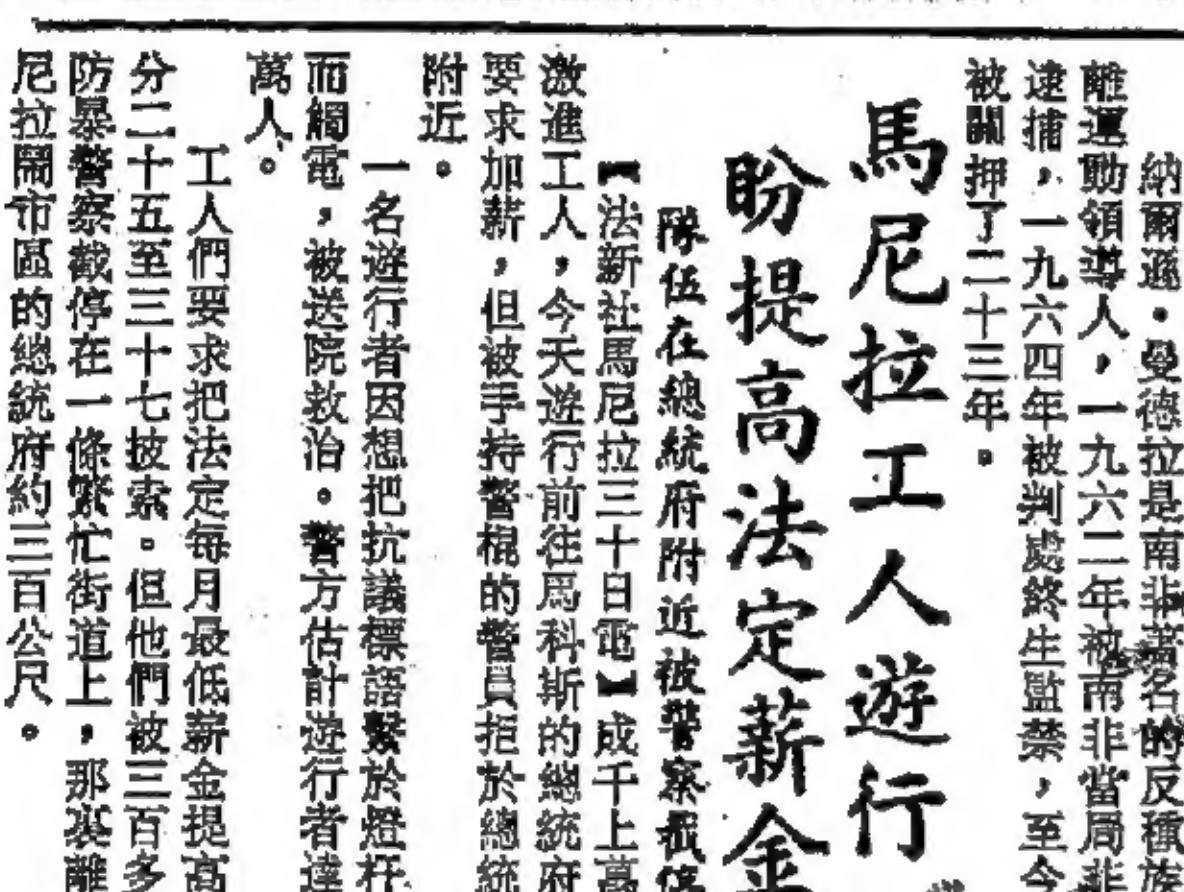 納爾遜·曼德拉是南非著名的反種族
離運動領導人，一九六二年被南非當局非
逮捕，一九六四年被判處終生監禁，至今
被關押了二十三年。
馬尼拉工人遊行
盼提高法定薪金
隊伍在總統府附近被警察截停
【法新社馬尼拉三十日電】成千上萬
激進工人，今天遊行前往馬科斯的總統府
要求加薪，但被手持警棍的警員拒於總統
附近。
一名遊行者因想把抗議標語繫於燈杆
而觸電，被送院救治。警方估計遊行者達
萬人。
工人們要求把法定每月最低薪金提高
分二十五至三十七披索。但他們被三百多
防暴警察截停在一條繁忙街道上，那裏離
尼拉鬧市區的總統府約三百公尺。